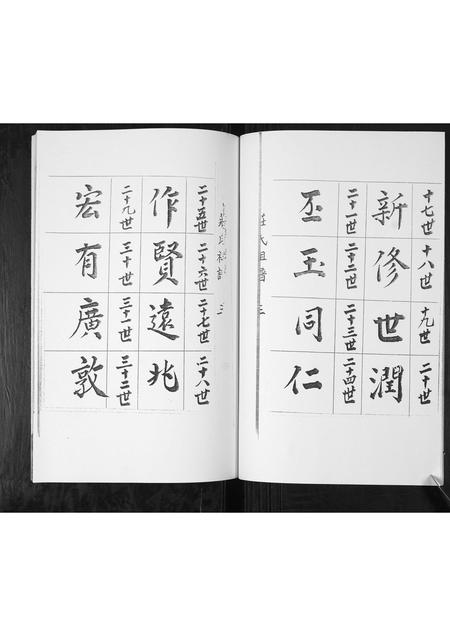 十七世 十八世 十九世 二十世
新 修 世 潤
二十一世 二十二世 二十三世 二十四世
丕 玉 同 仁
莊氏祖譜 三
莊氏祖譜 三
二十五世 二十六世 二十七世 二十八世
作 賢 遠 兆
二十九世 三十世 三十一世 三十二世
宏 有 廣 敦